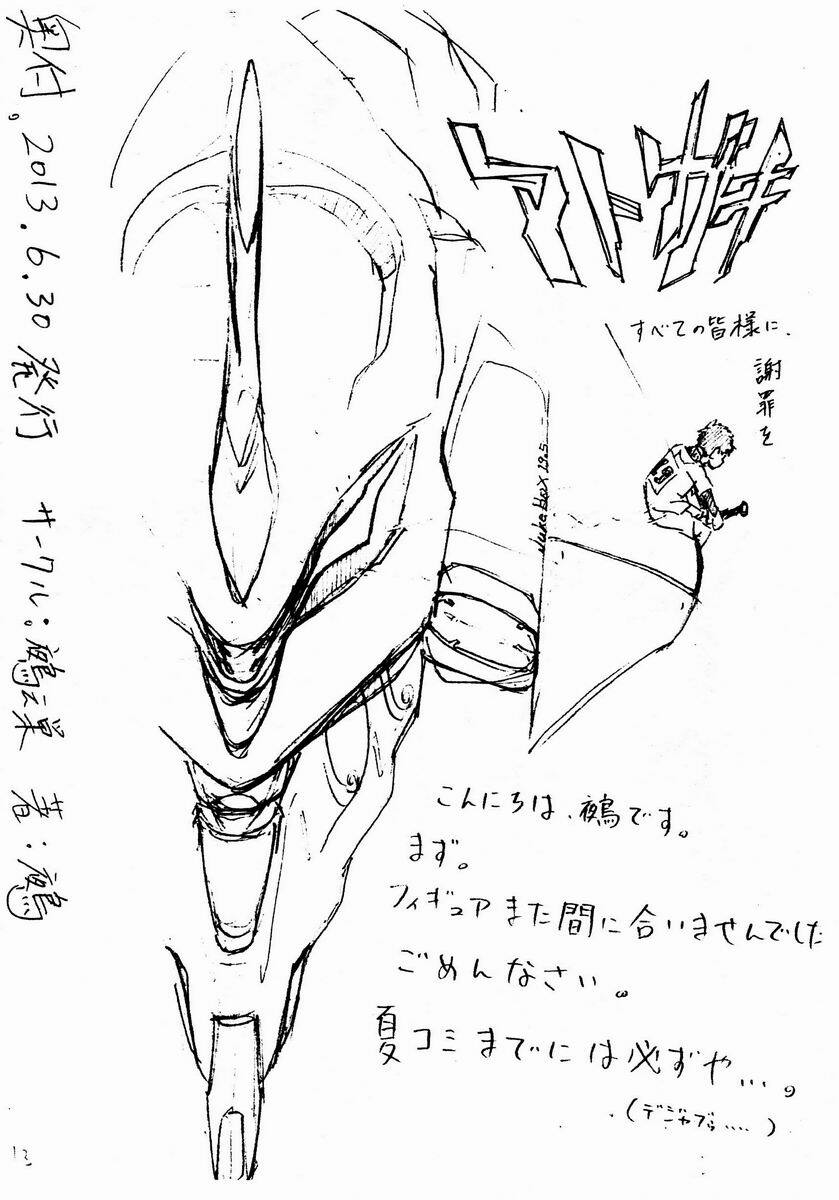 アトガキ
すべての皆様に、
謝罪を
19
Juke Box 29.5
こんにちは、鵺です。
まず。
フィギュアまた間に合いませんでした
ごめんなさい。
夏コミまでには必ずや…。
(デジャブゥ....)
奥付。2013.6.30発行 サークル:鵺之巣 著:鵺
13